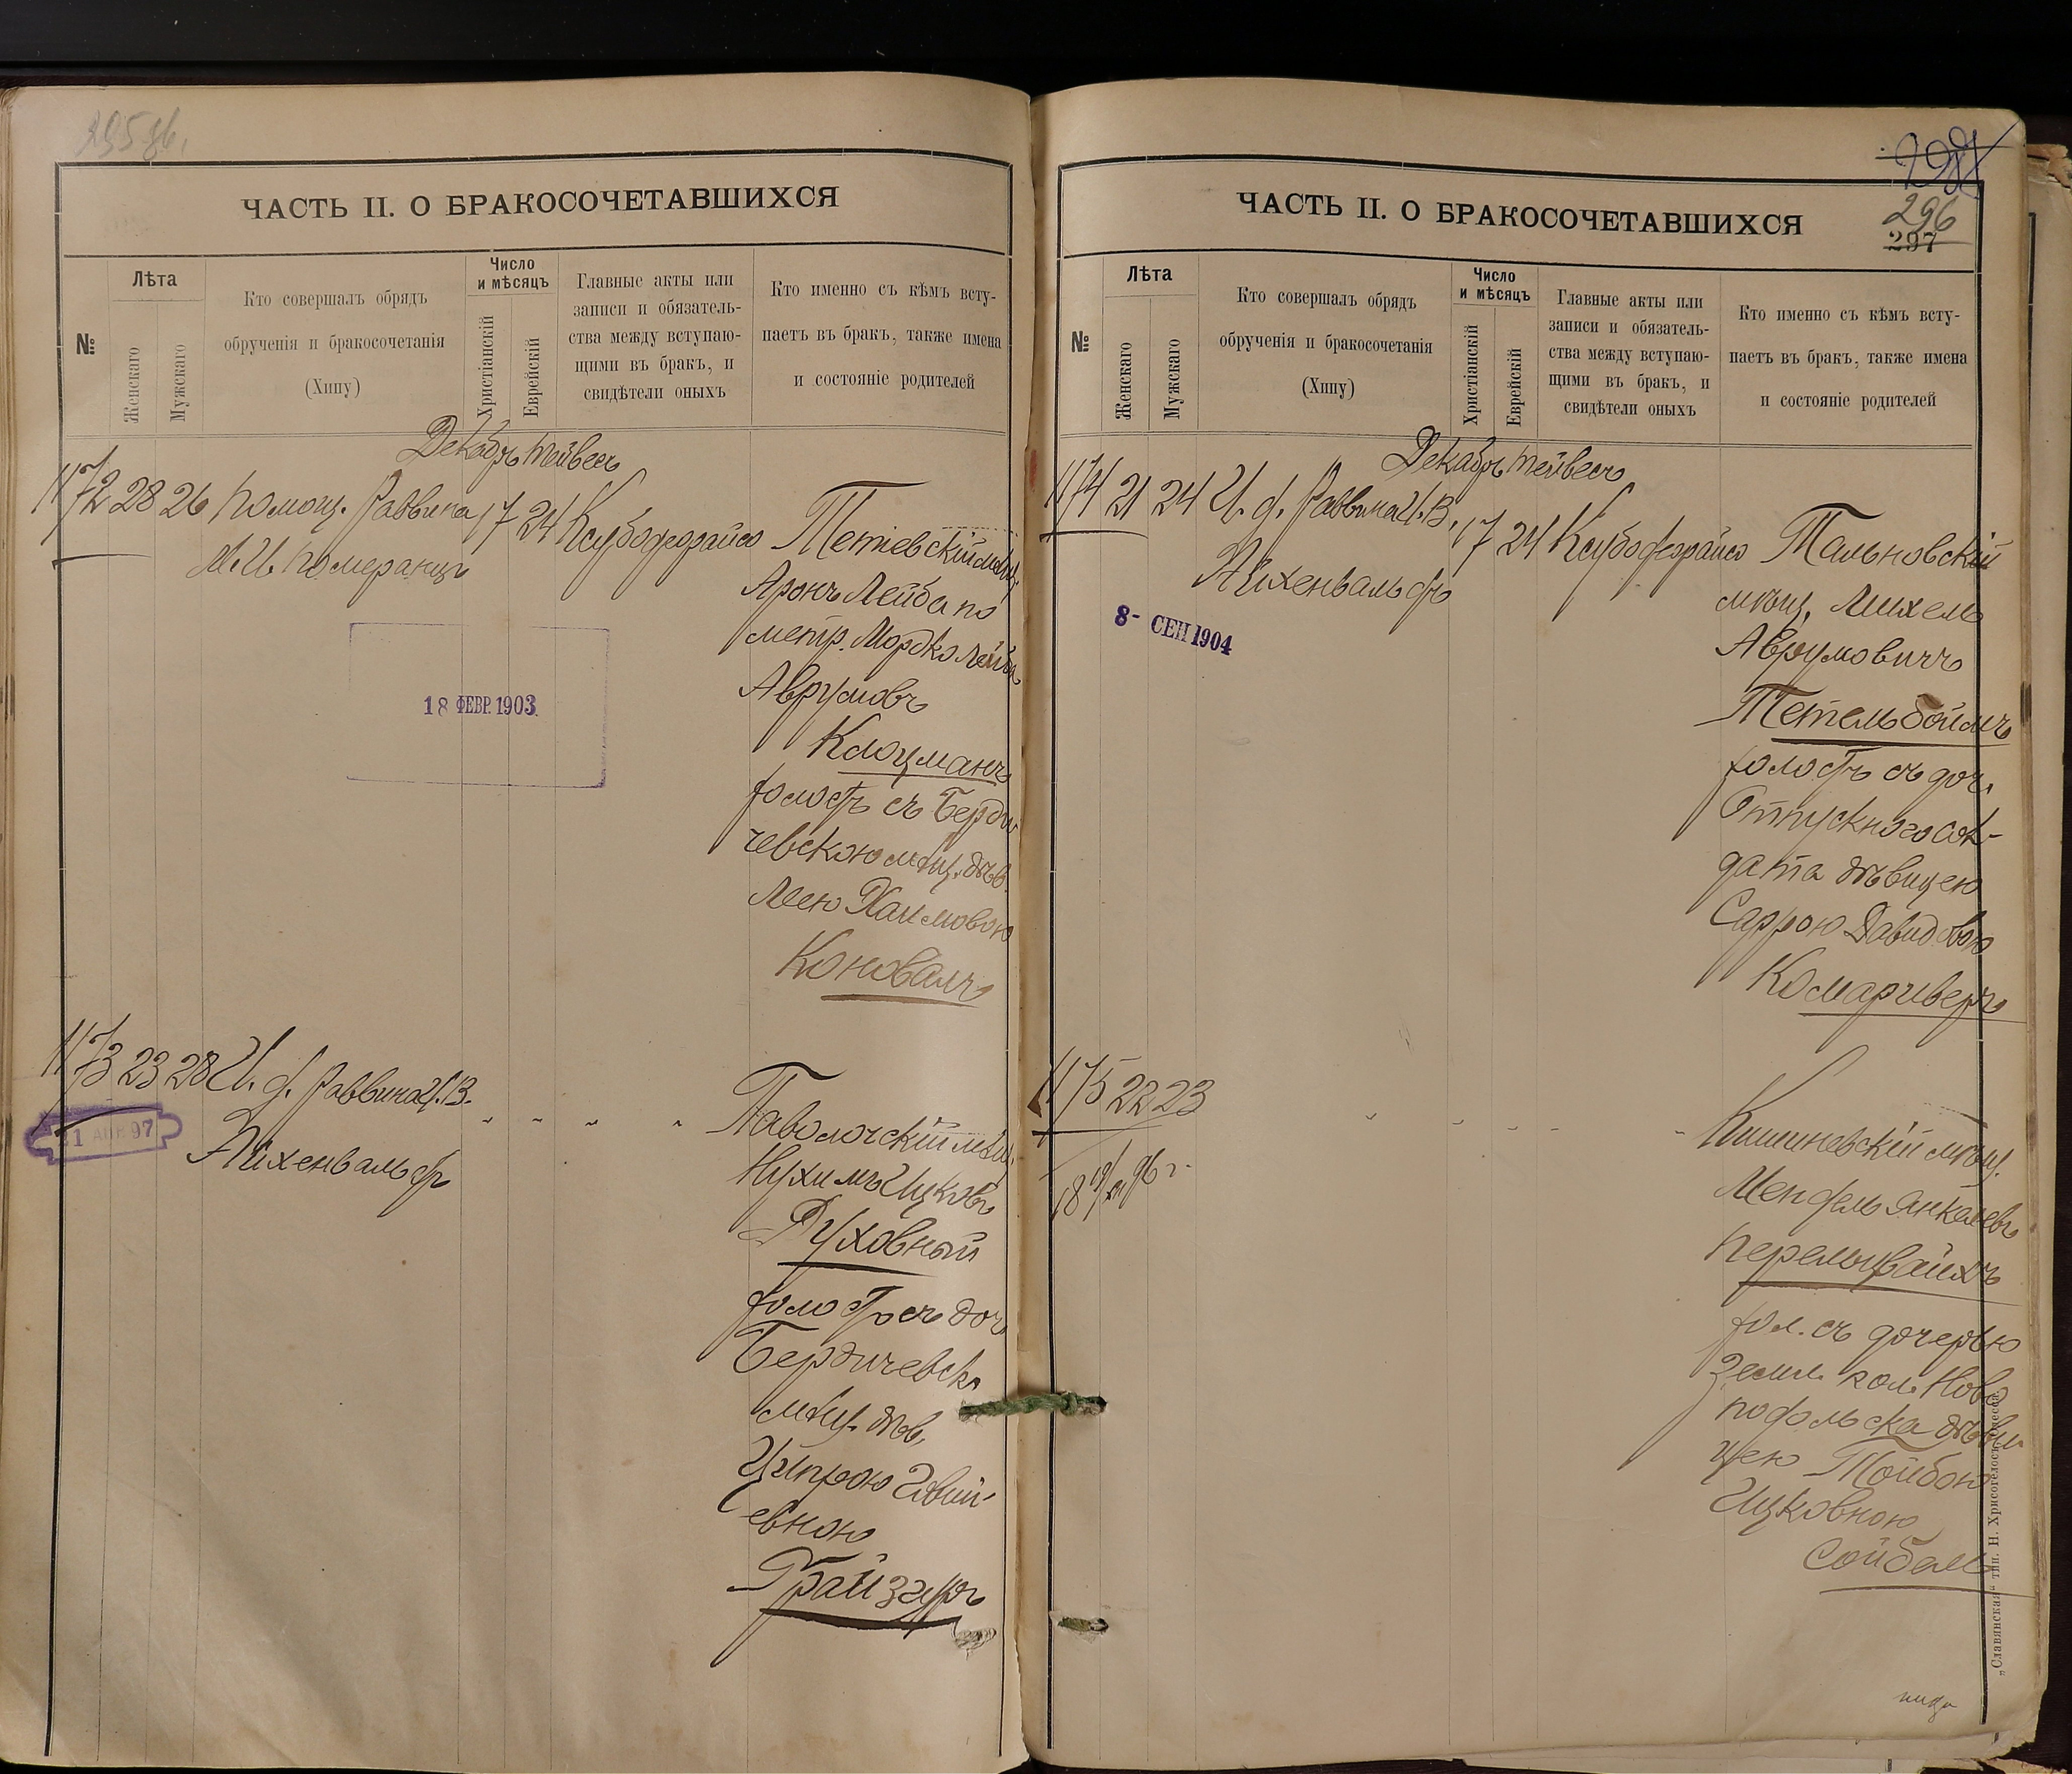 ЧАСТЬ II. О БРАКОСОЧЕТАВШИХСЯ
№
Лѣта
Женскаго
Мужскаго
Кто совершалъ обрядъ
обрученія и бракосочетанія
(Хипу)
Число
и мѣсяцъ
Христіанскій
Еврейскій
Главные акты или
записи и обязатель-
ства между вступаю-
щими въ бракъ, и
свидѣтели оныхъ
Кто именно съ кѣмъ всту-
паетъ въ бракъ, также имена
и состояніе родителей
Декабрь Тейвесъ
1172 28 26 Помощ. Раввина 17 24 Ксубофорайсо
М. И. Померанцъ
Тетіевскій мѣщ.
Аронъ Лейба по
метр. Мордко Лейба
Аврумовъ
Клоцманъ
холостъ съ Берди
чевскою мѣщ. дѣв.
Леею Хаимовою
Коновалъ
18 ФЕВР. 1903
1173 23 28 И. д. Раввина Ц. В.
Айхенвальдъ
97
Паволочскій мѣщ.
Нухимъ Ицковъ
Духовный
холостъ съ доч
Бердичевск.
мѣщ. дѣв.
Ципрою
евною
Грайзеръ
ЧАСТЬ II. О БРАКОСОЧЕТАВШИХСЯ
296
297
№
Лѣта
Женскаго
Мужскаго
Кто совершалъ обрядъ
обрученія и бракосочетанія
(Хипу)
Число
и мѣсяцъ
Христіанскій
Еврейскій
Главные акты или
записи и обязатель-
ства между вступаю-
щими въ бракъ, и
свидѣтели оныхъ
Кто именно съ кѣмъ всту-
паетъ въ бракъ, также имена
и состояніе родителей
Декабрь Тейвесъ
1174 21 24 И. д. Раввина Ц. В. 17 24 Ксубофорайсо
Айхенвальдъ
8 - СЕН 1904
Тальновскій
мѣщ. Михель
Аврумовичъ
Тетельбоймъ
холостъ съ доч.
Отпускного сол-
дата дѣвицею
Саррою Давидовою
Комариверъ
1175 22 23
Кишиневскій мѣщ.
Мендель Янкелевъ
Перельцвайхъ
хол. съ дочерью
Земл. кол. Ново
подольска дѣви
цею Тойбою
Ицковною
Сойбель
„Славянская“ тип. Н. Хрисогелосъ, Одесса.